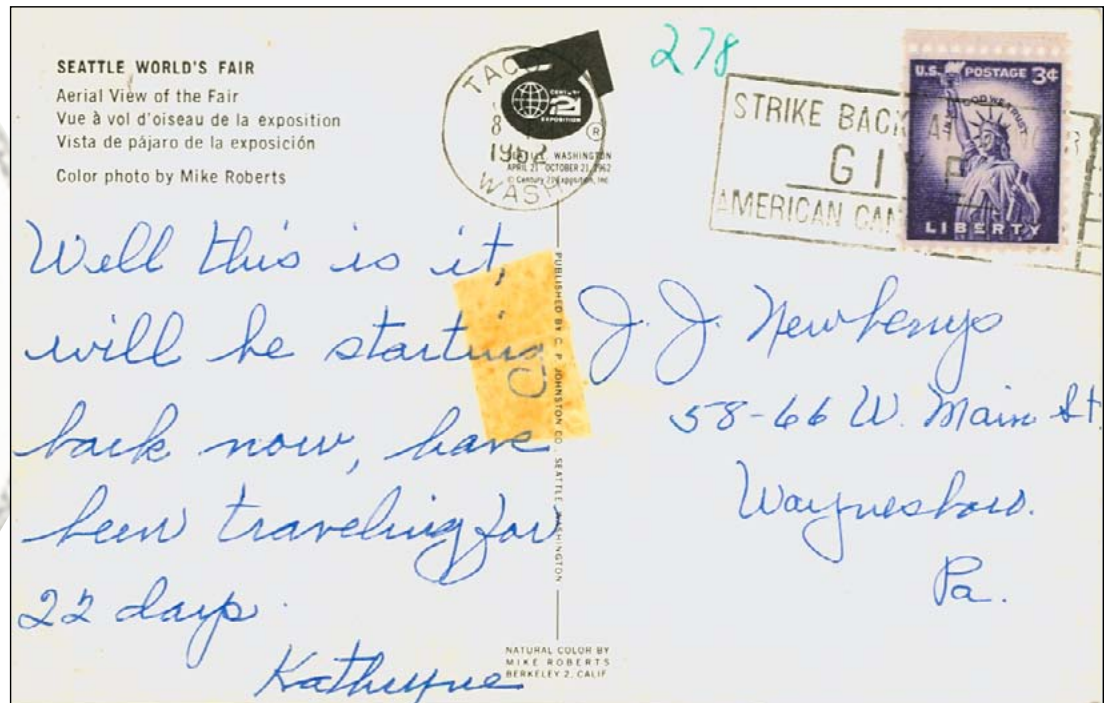 SEATTLE WORLD'S FAIR
Aerial View of the Fair
Vue à vol d'oiseau de la exposition
Vista de pájaro de la exposición
Color photo by Mike Roberts
278
TACO
8
1962
WASH
CENTURY
21
EXPOSITION
®
WASHINGTON
APRIL 21 - OCTOBER 21, 1962
© Century 21 Exposition, Inc
STRIKE BACK
GIVE
AMERICAN CAN
U.S. POSTAGE 3¢
IN GOD WE TRUST
LIBERTY
Well this is it,
will be starting
back now, have
been traveling for
22 days.
Kathryne
PUBLISHED BY C. P. JOHNSTON CO., SEATTLE, WASHINGTON
J. J. Newberrys
58-66 W. Main St.
Waynesboro.
Pa.
NATURAL COLOR BY
MIKE ROBERTS
BERKELEY 2, CALIF